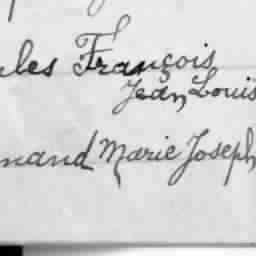 les François
Jean Louis
mand Marie Joseph